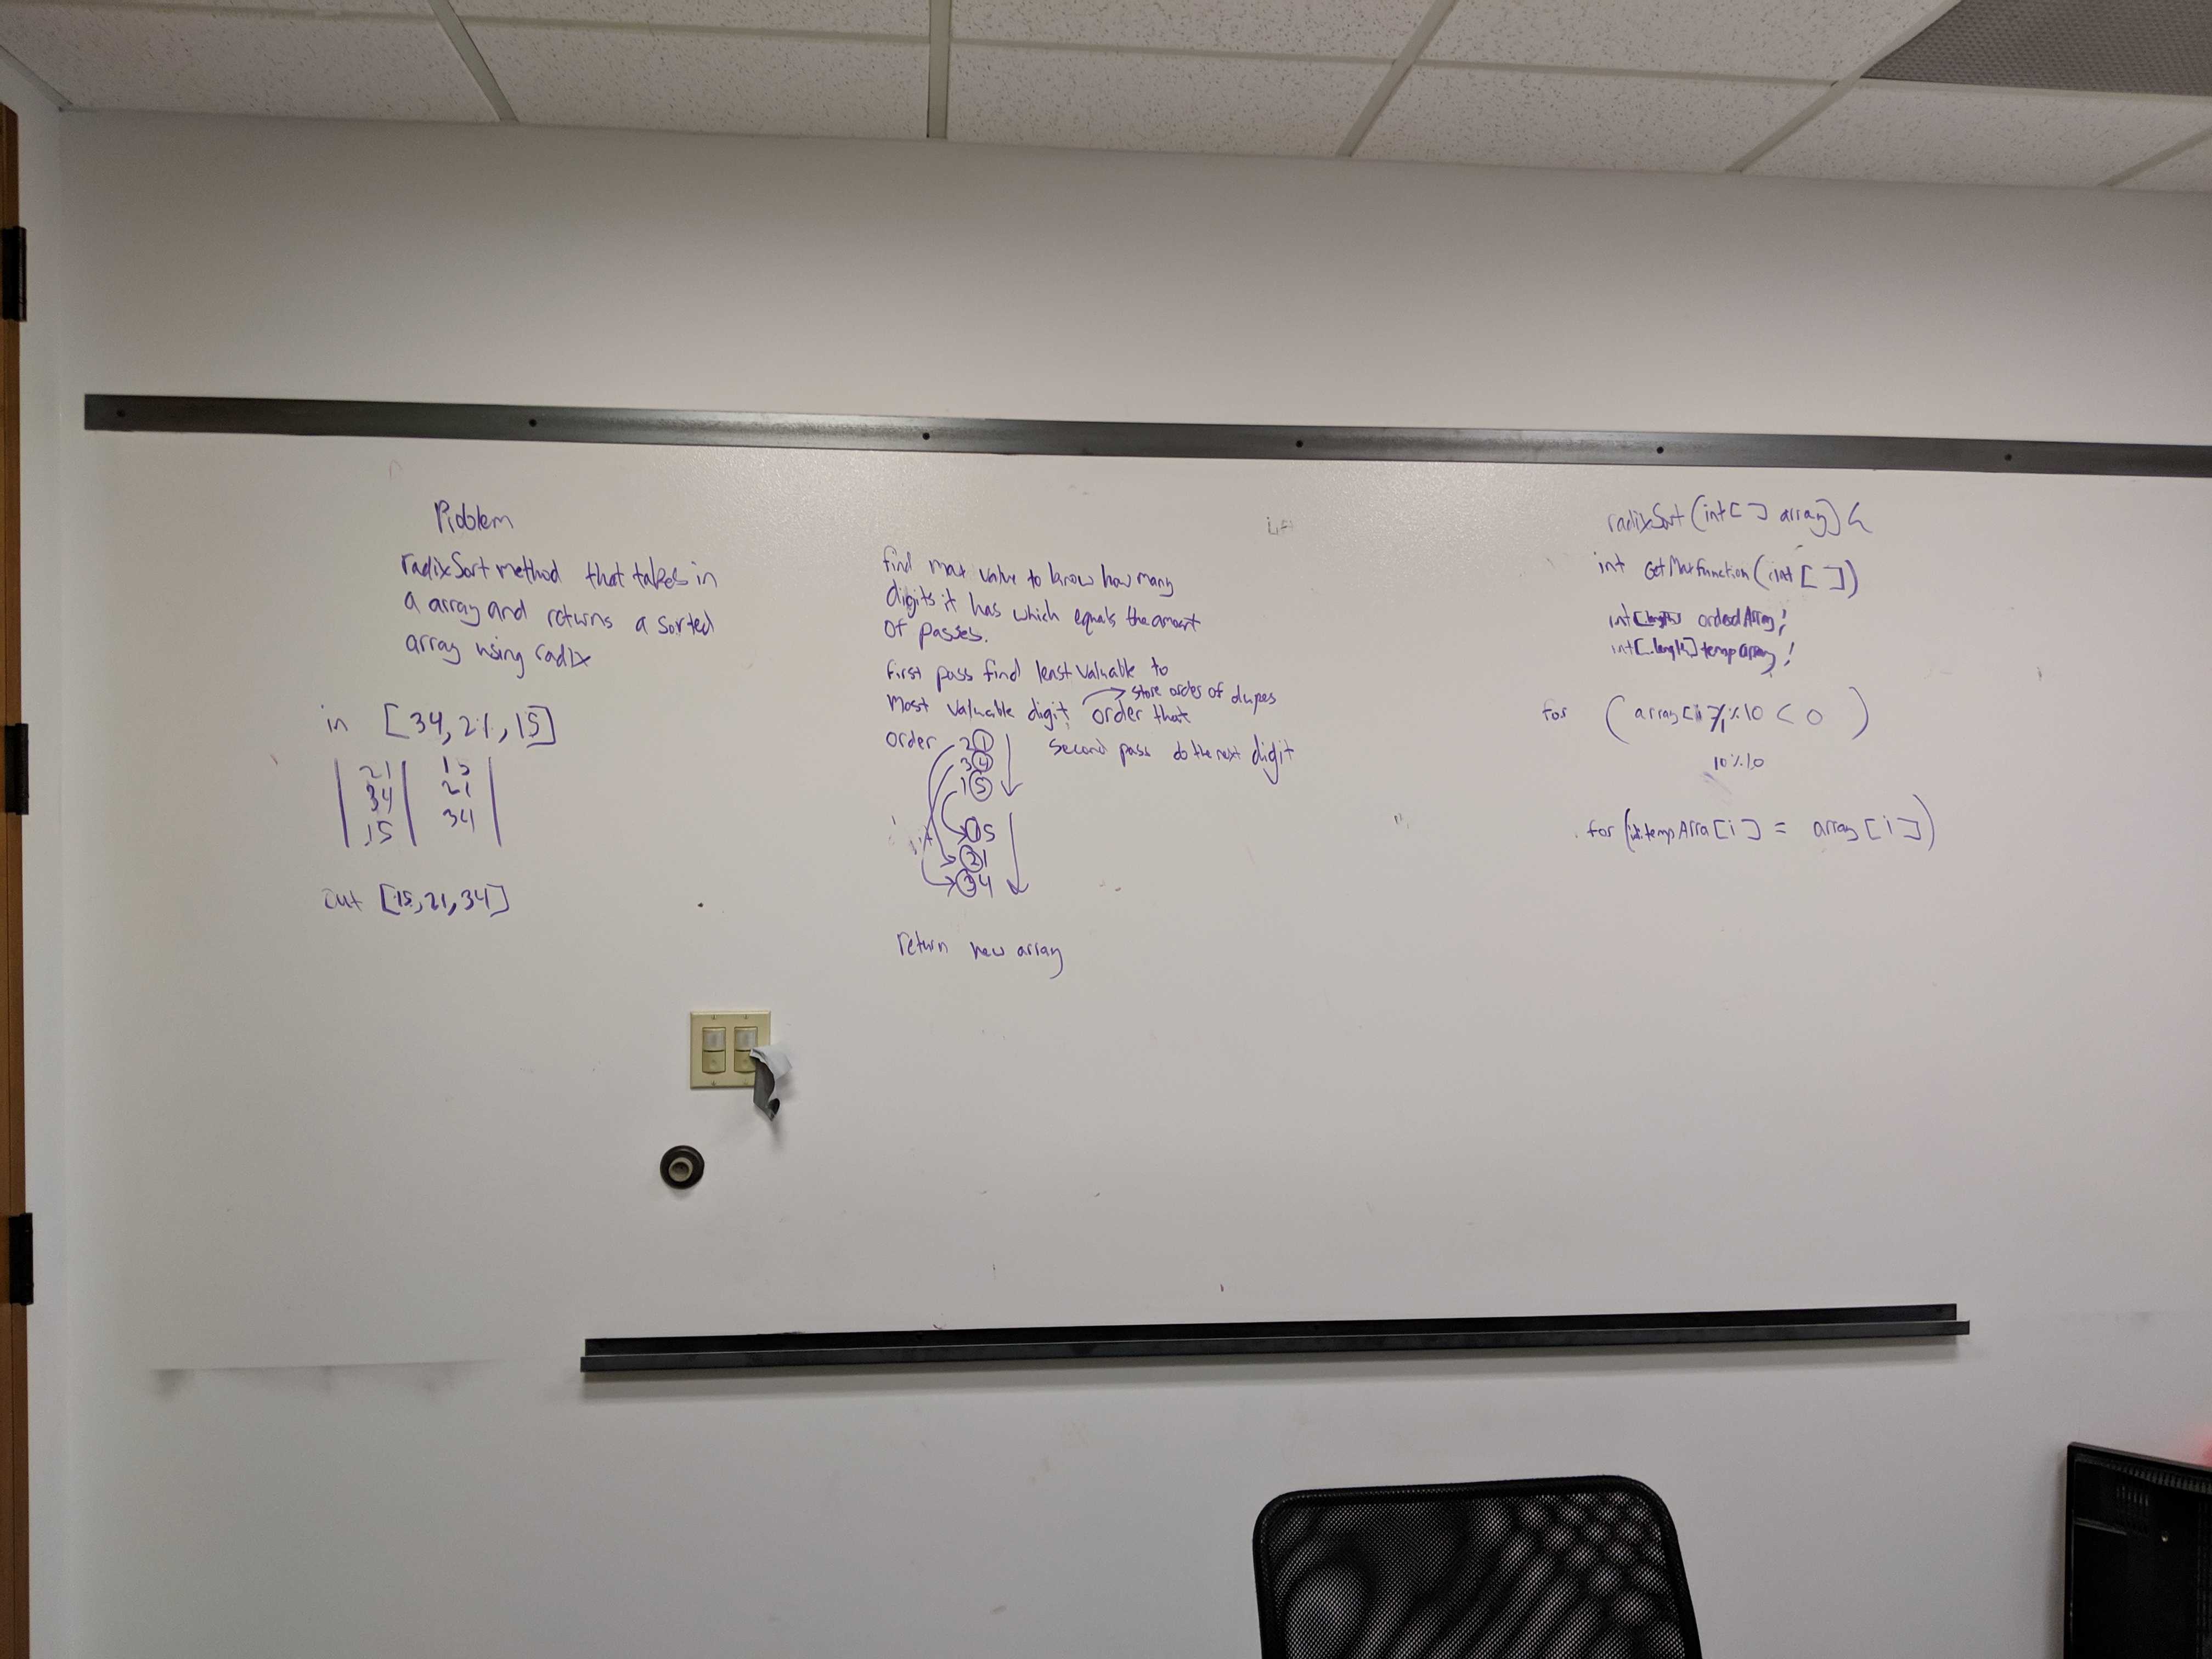 Problem
radixSort method that takes in
a array and returns a sorted
array using radix
in [34, 21, 15]
21 15
34 21
15 34
out [15, 21, 34]
find max value to know how many
digits it has which equals the amount
of passes.
First pass find least valuable to
store order of dupes
Most valuable digit, order that
order 21
34
15
Second pass do the next digit
15
21
34
return new array
radixSort(int[] array){
int GetMaxFunction(int[])
int[.length] orderdArray;
int[.length] tempArray;
for (array[i] % 10 < 0)
10 % 10
for (tempArra[i] = array[i])